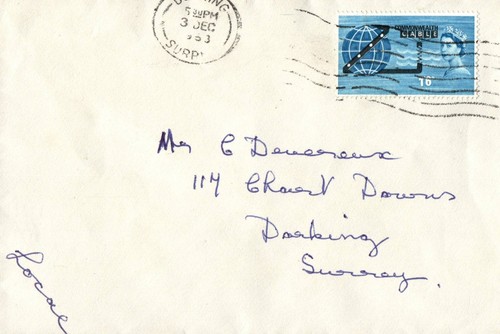 DORKING
5 30 PM
3 DEC
1963
SURREY
COMMONWEALTH
CABLE
1'6
Mr C Devereux
114 Chart Downs
Dorking
Surrey.
Local